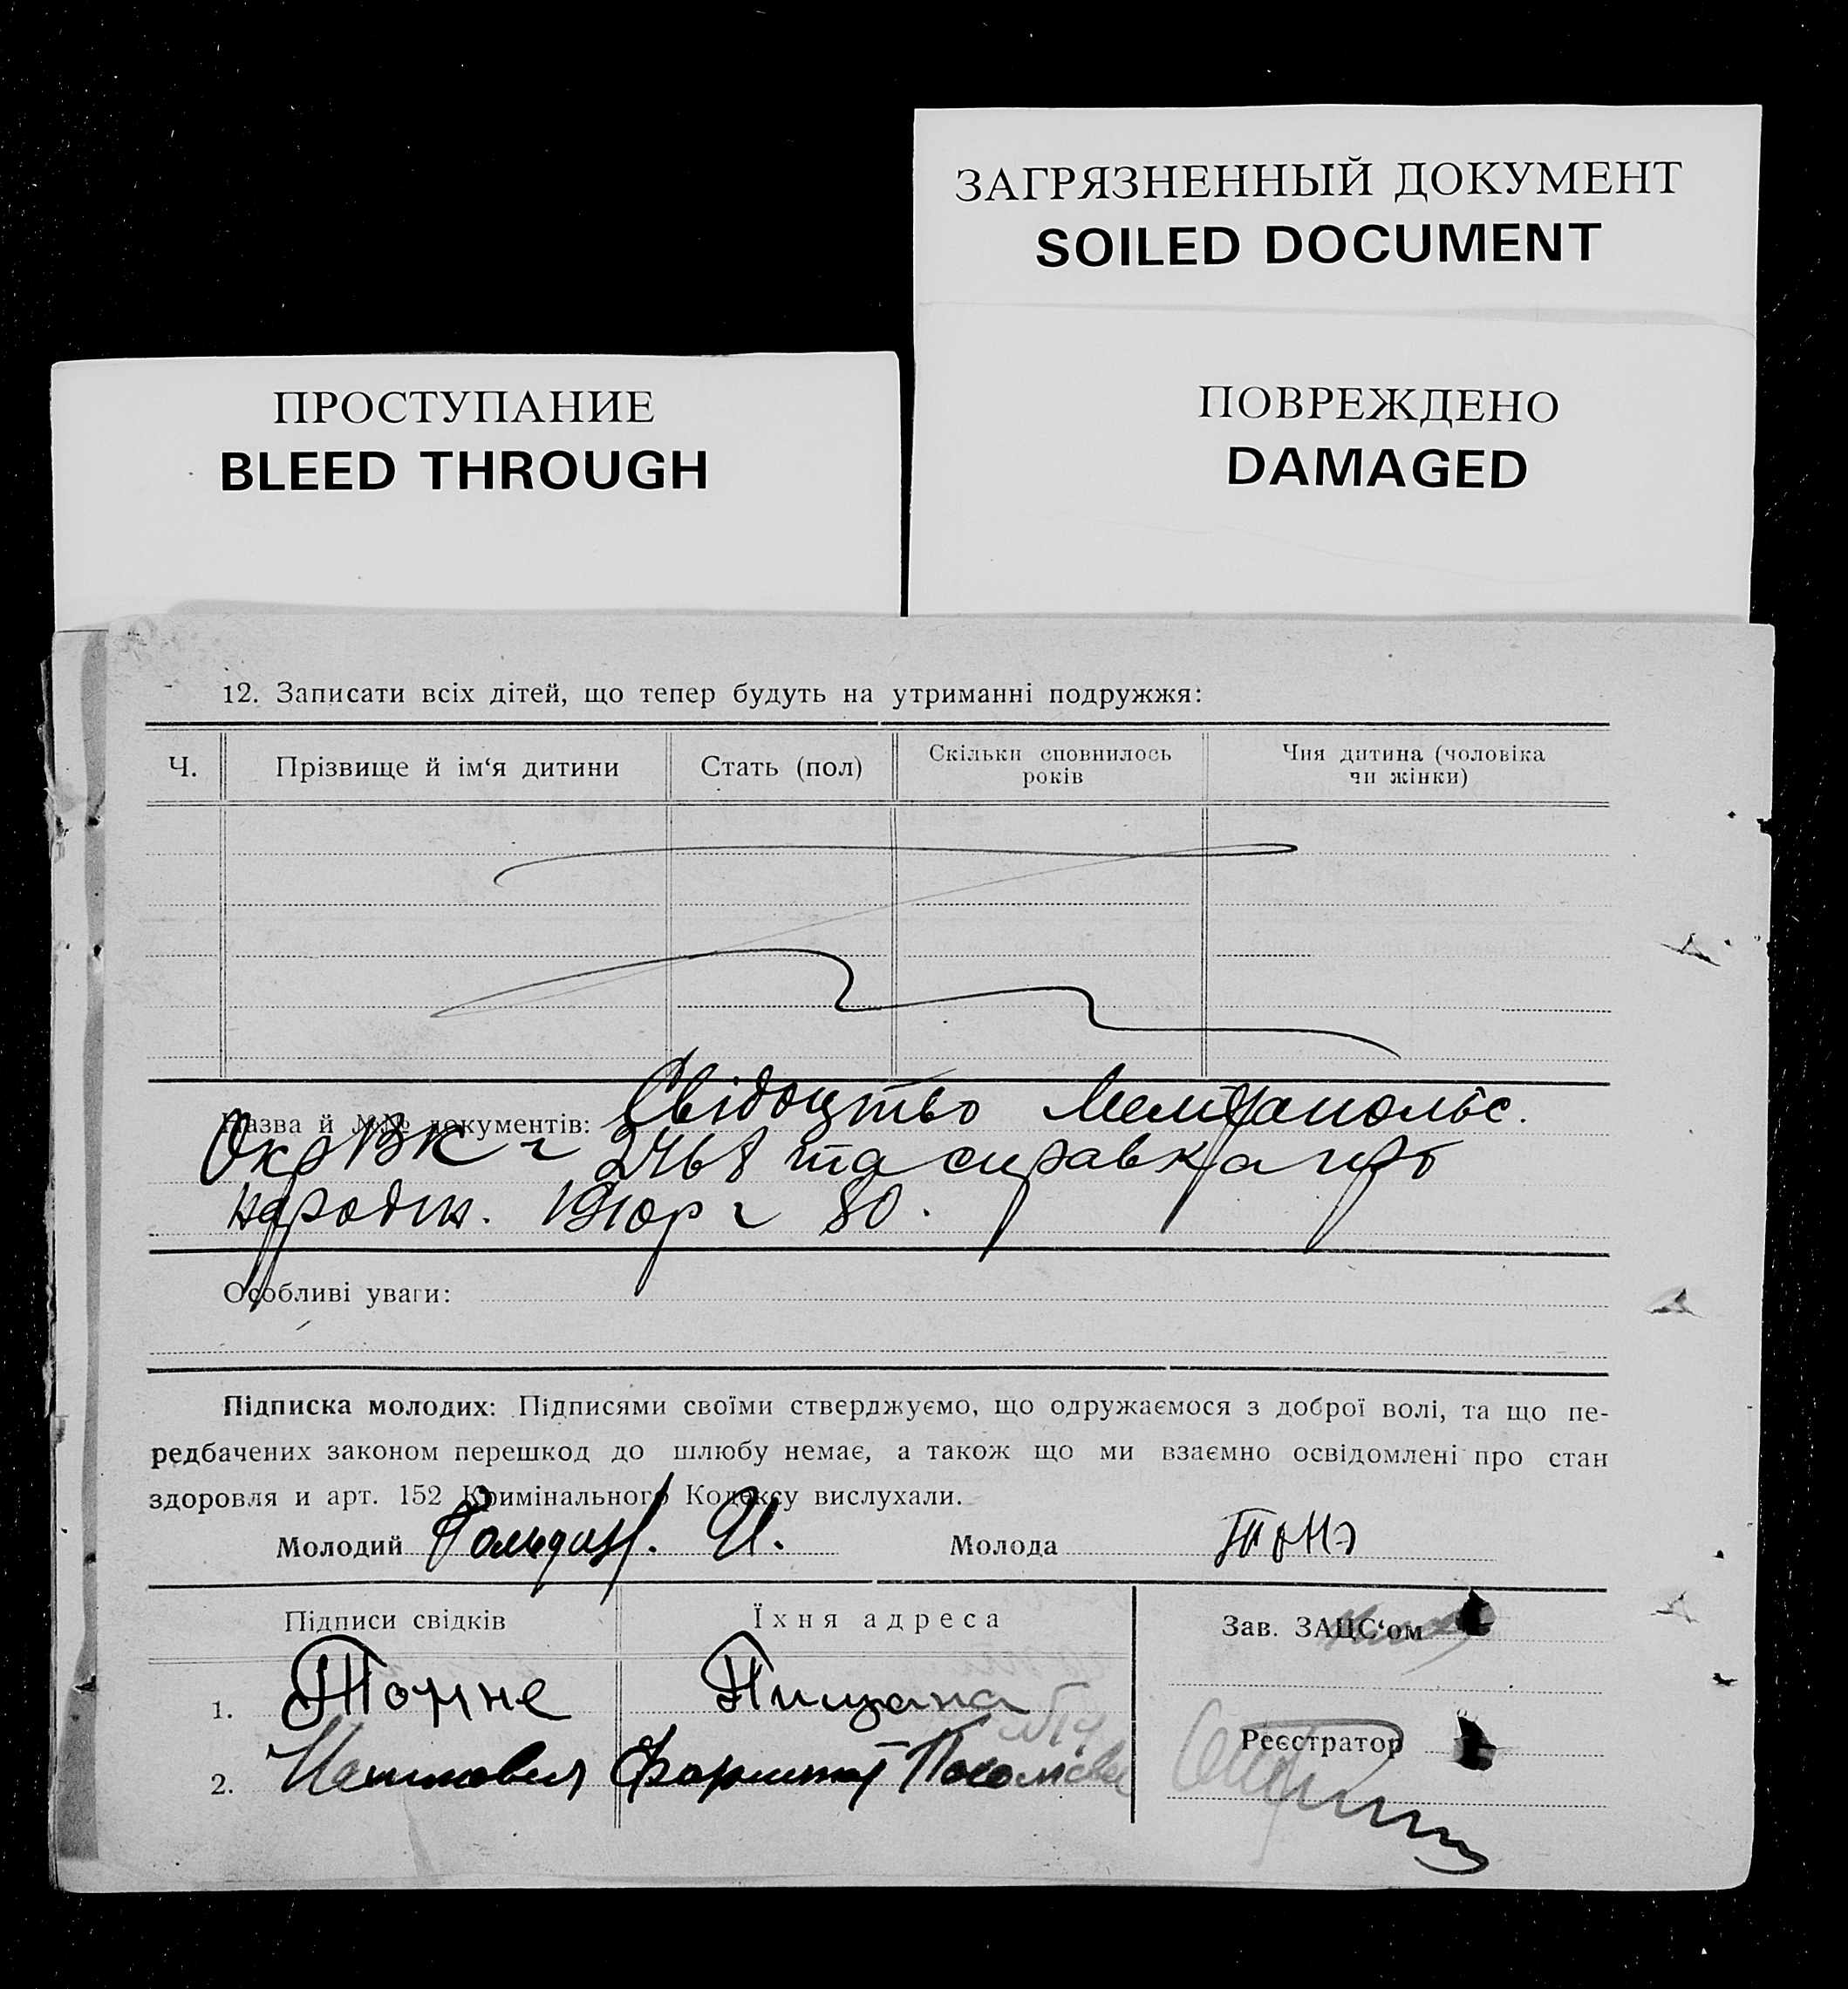 ЗАГРЯЗНЕННЫЙ ДОКУМЕНТ
SOILED DOCUMENT
ПРОСТУПАНИЕ
BLEED THROUGH
ПОВРЕЖДЕНО
DAMAGED
12. Записати всіх дітей, що тепер будуть на утриманні подружжя:
Ч.
Прізвище й ім‘я дитини
Стать (пол)
Скільки сповнилось
років
Чия дитина (чоловіка
чи жінки)
Назва й №№ документів: Свідоцтво Мелітопольс.
ОкрВК 2468 та справка про
народж. 80.
Особливі уваги:
Підписка молодих: Підписями своїми стверджуємо, що одружаємося з доброї волі, та що пе-
редбачених законом перешкод до шлюбу немає, а також що ми взаємно освідомлені про стан
здоровля и арт. 152 Кримінального Кодексу вислухали.
Молодий
Молода
Підписи свідків
Їхня адреса
Зав. ЗАЦС‘ом
1.
2.
Реєстратор